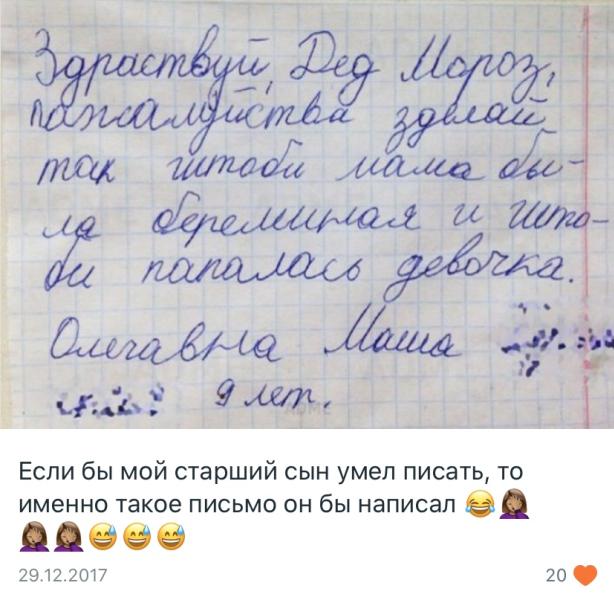 Здраствуй, Дед Мороз,
пажалуйства зделай
так штоби мама бы-
ла беременая и што-
би папалась девочка.
Олегавна Маша
9 лет.
Если бы мой старший сын умел писать, то
именно такое письмо он бы написал 😂🤦🏾‍♀️
🤦🏾‍♀️🤦🏾‍♀️😅😅😅
29.12.2017 20 🧡